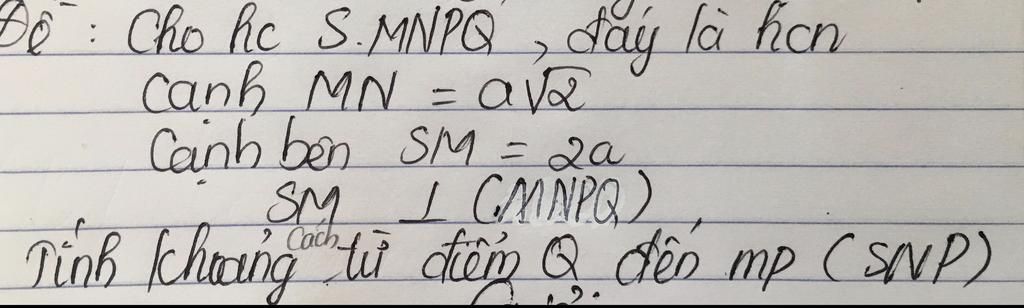 Đề : Cho hc S.MNPQ , đáy là hcn
Cạnh MN = a√2
Cạnh bên SM = 2a
SM ⊥ (MNPQ) ,
Tính khoảng cách từ điểm Q đến mp (SNP)